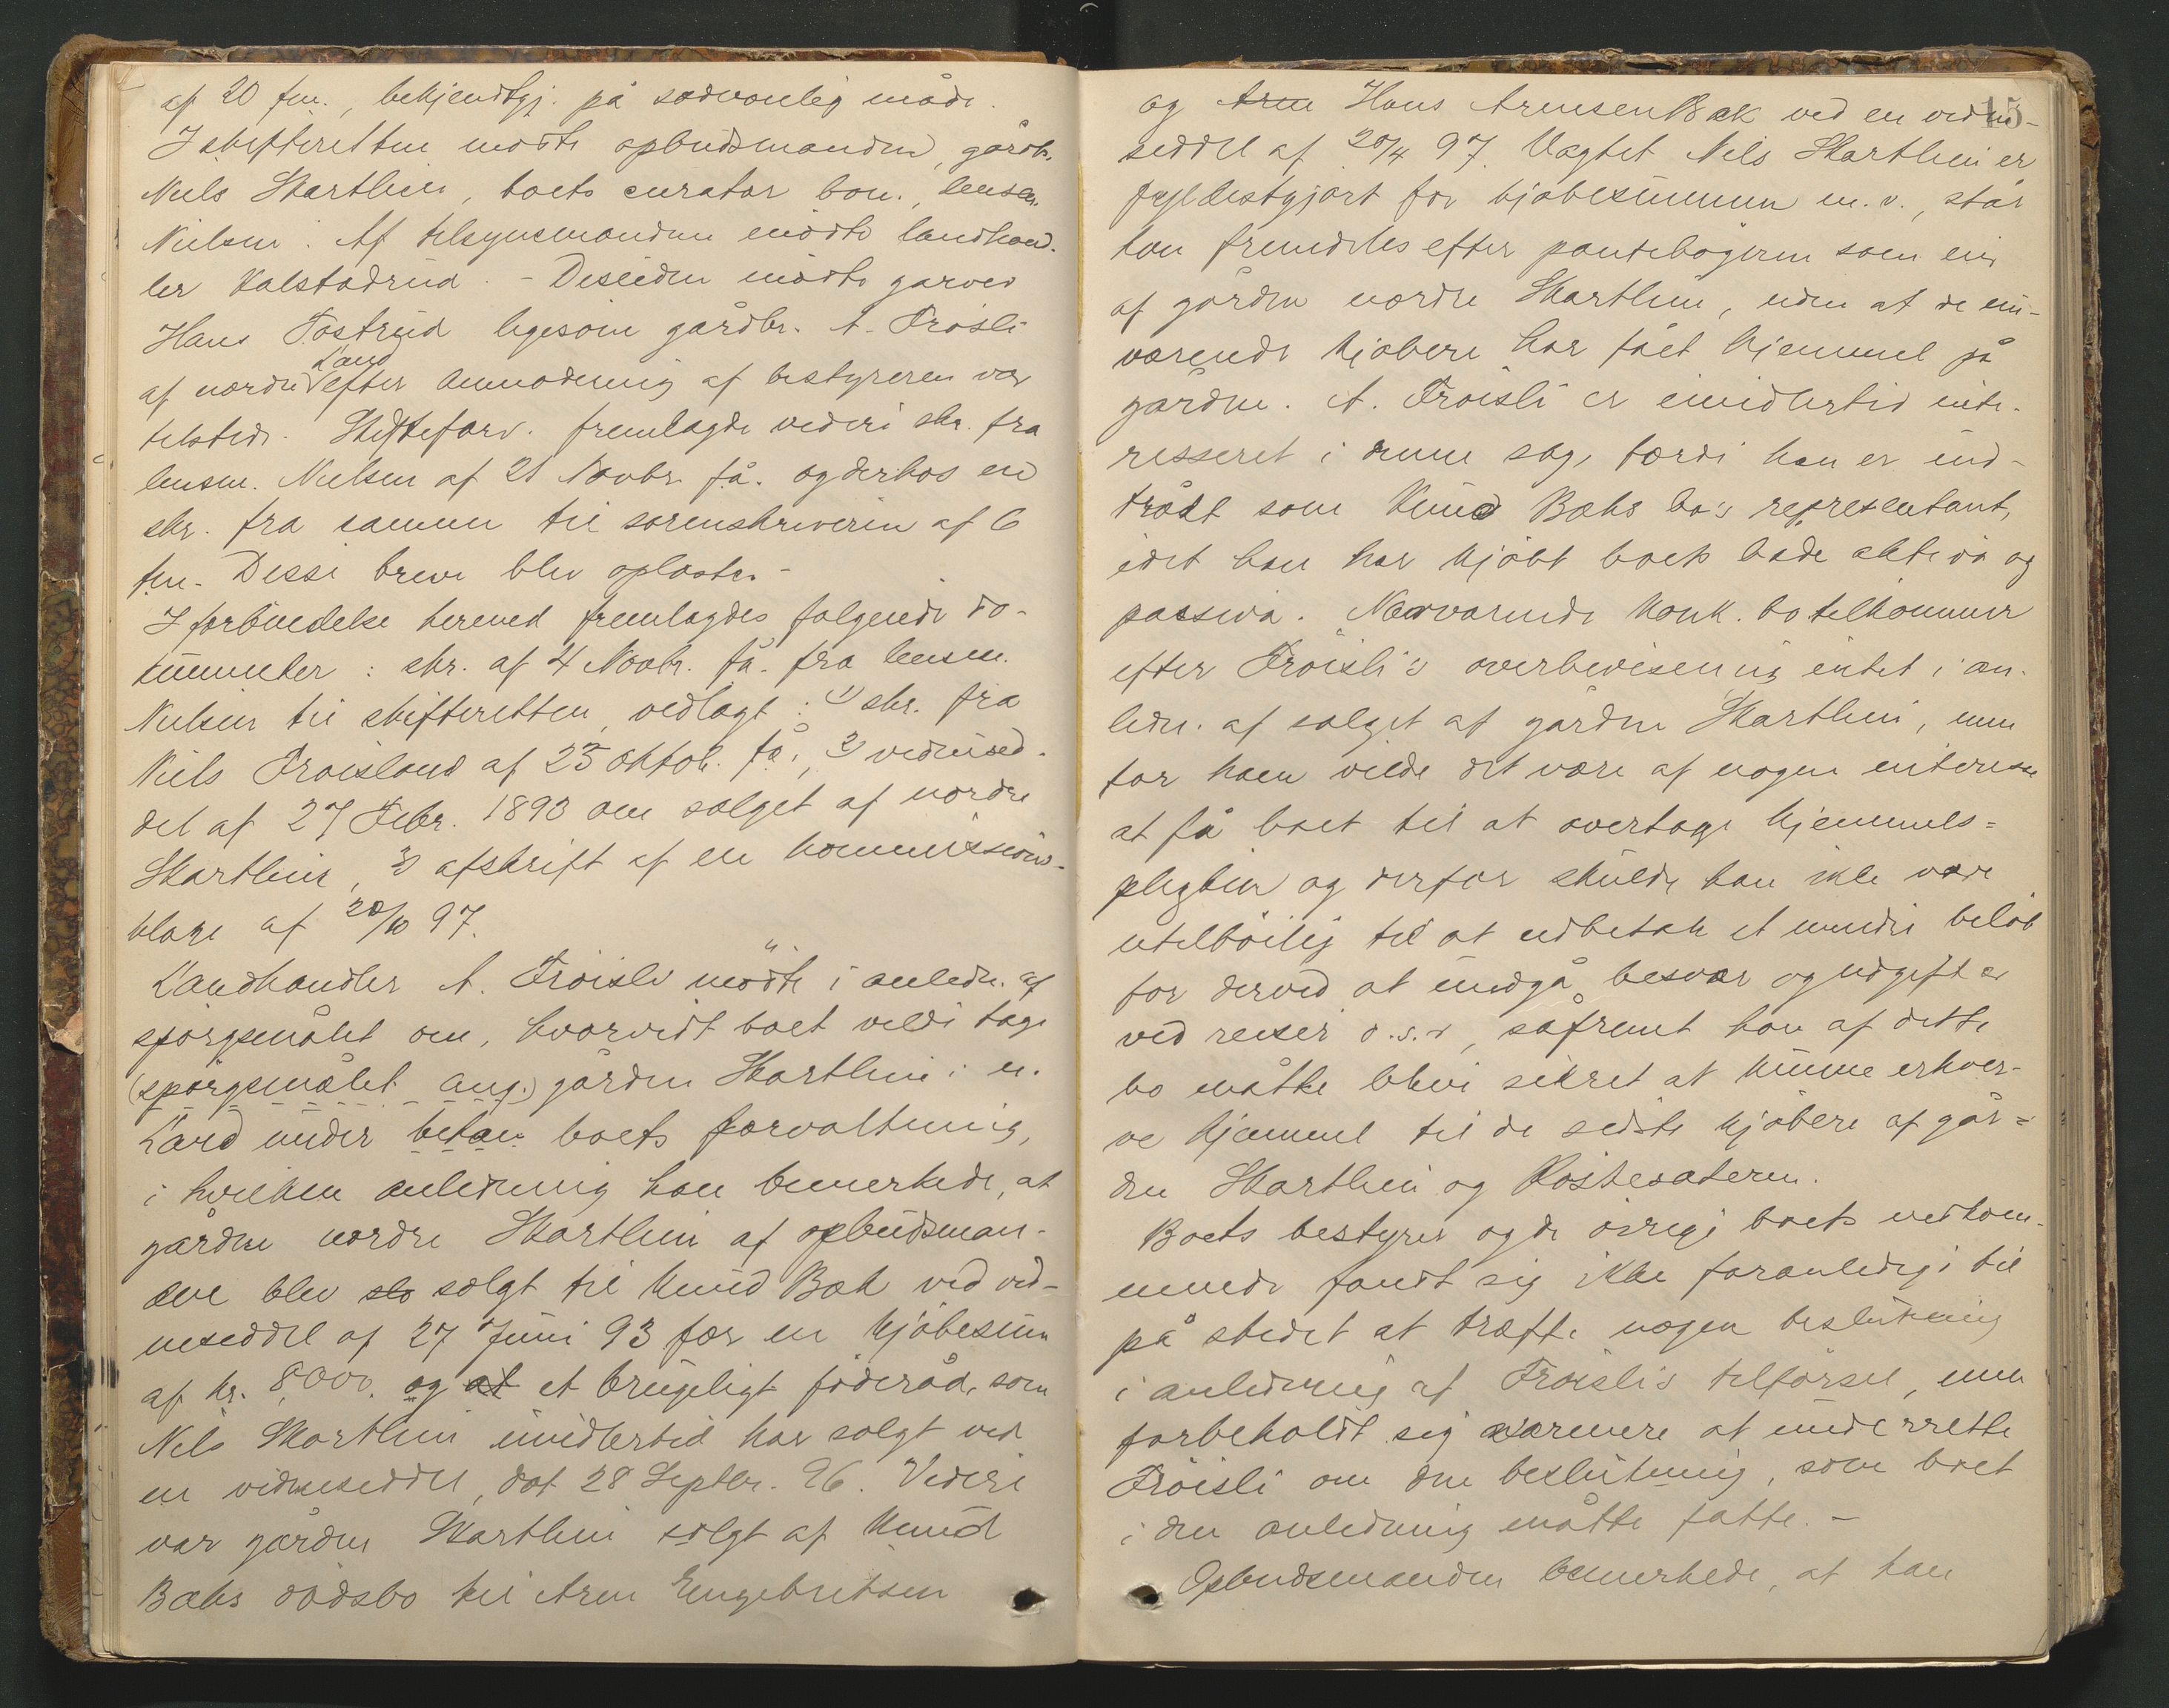 af 20 fm., bekjendtgj. på sædvanlig måde.
I skifteretten mødte opbudsmanden, gårdbr.
Niels Skartlien, boets curator bon., lensm.
Nielsen. Af tilsynsmændene mødte landhand-
ler Kalstadrud. – Desuden mødte garver
Hans Tostrud ligesom gårdbr. A. Frøsli
Land
af nordre efter anmodning af bestyreren var
tilstede. Skifteforv. fremlagde videre skr. fra
lensm. Nielsen af 21 Novbr. få. og derhos en
skr. fra samme til sorenskriveren af 6
fm. Disse breve blev oplæste. –
I forbindelse hermed fremlagdes følgende do-
kumenter: skr. af 4 Novbr. få. fra lensm.
Nielsen til skifteretten, vedlagt: 1) skr. fra
Niels Frøisland af 25 oktob. få., 2) vidnesed-
del af 27 Febr. 1893 om salget af nordre
Skartlien, 3) afskrift af en kommissions-
klage af 20/10 97.
Landhandler A. Frøisli mødte i anledn. af
spørgsmålet om, hvorvidt boet vilde tage
(spørgsmålet ang.) gården Skartlien i n.
Land under betæn boets forvaltning,
i hvilken anledning han bemerkede, at
gården nordre Skartlien af opbudsman-
den blev slo solgt til Knud Bæk ved vid-
neseddel af 27 Juni 93 for en kjøbesum
af kr. 8000, og at et brugeligt føderåd, som
Nils Skartlien imidlertid har solgt ved
en vidneseddel, dat 28 Septbr. 96. Videre
var gården Skartlien solgt af Knud
Bæks dødsbo til Arne Engebretsen
15
og Arne Hans Arnesen Bæk ved en vidne-
seddel af 20/4 97. Uagtet Nils Skartlien er
fyldestgjort for kjøbesummen m.v., står
han fremdeles efter pantebøgerne som eier
af gården nordre Skartlien, uden at de nu-
værende kjøbere har fået hjemmel på
gården. A. Frøisli er imidlertid inte-
resseret i denne sag, fordi han er ind-
trådt som Knud Bæks bo's representant,
idet han har kjøbt boets både aktiva og
passiva. Nærværende konk. bo tilkommer
efter Frøisli's overbevisning intet i an-
ledn. af salget af gården Skartlien, men
for ham vilde det være af nogen interesse
at få boet til at overtage hjemmels-
pligten og derfor skulde han ikke være
utilbøilig til at udbetale et mindre beløb
for derved at undgå besvær og udgifter
ved reiser o.s.v, såfremt han af dette
bo måtte blive sikret at kunne erhver-
ve hjemmel til de sidste kjøbere af går-
den Skartlien og Kostesæteren.
Boets bestyrer og de øvrige boets vedkom-
mende fandt sig ikke foranledig i til
på stedet at træffe nogen beslutning
i anledning af Frøisli's tilførsel, men
forbeholdt sig nærmere at underrette
Frøisli om den beslutning, som boet
i den anledning måtte fatte. –
Opbudsmanden bemerkede, at han